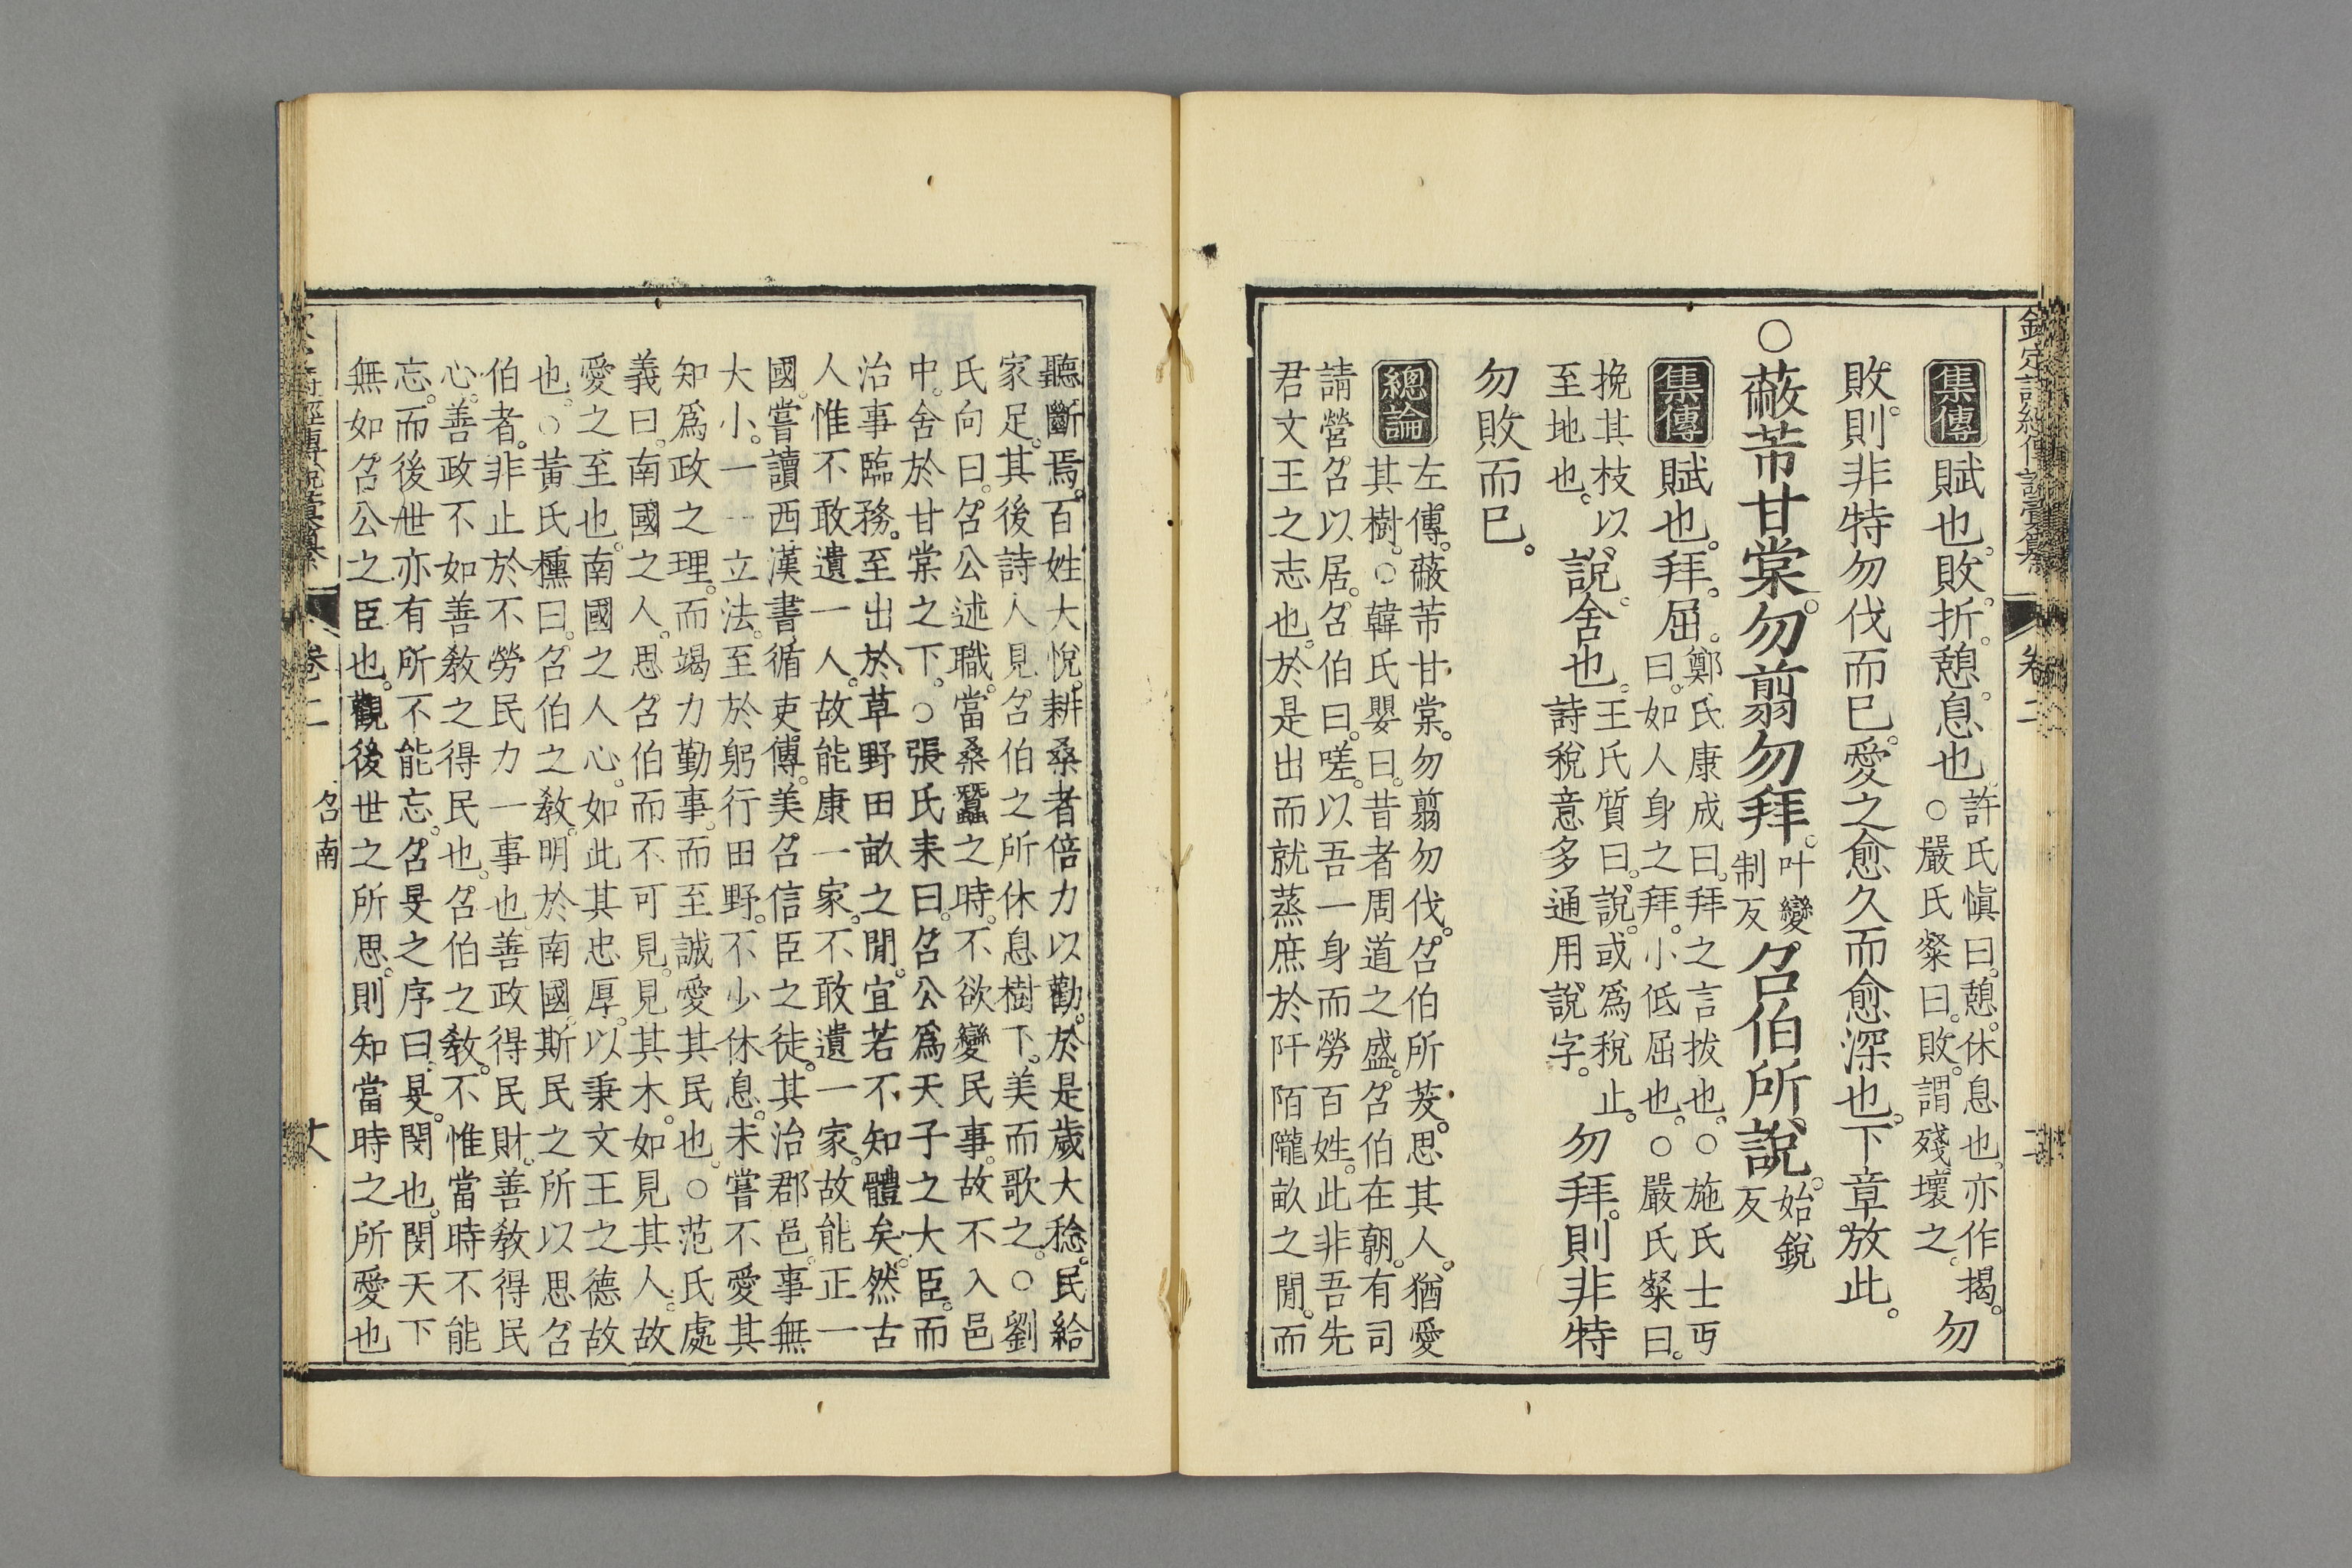 集傳 賦也。敗。折。憩。息也。許氏愼曰。憩。休息也。亦作揭。○嚴氏粲曰。敗。謂殘壞之。勿
敗。則非特勿伐而已。愛之愈久而愈深也。下章放此。
○蔽芾甘棠。勿翦勿拜。叶變制反召伯所說。始銳反
集傳 賦也。拜。屈。鄭氏康成曰。拜之言拔也。○施氏士丐曰。如人身之拜。小低屈也。○嚴氏粲曰。
挽其枝以至地也。說。舍也。王氏質曰。說。或爲稅止。詩稅意多通用說字。勿拜。則非特
勿敗而已。
總論 左傳。蔽芾甘棠。勿翦勿伐。召伯所茇。思其人。猶愛
其樹。○韓氏嬰曰。昔者周道之盛。召伯在朝。有司
請營。召以居。召伯曰。嗟。以吾一身而勞百姓。此非吾先
君文王之志也。於是出而就蒸庶於阡陌隴畝之閒。而
聽斷焉。百姓大悅。耕桑者倍力以勸。於是歲大稔。民給
家足。其後詩人見。召伯之所休息樹下。美而歌之。○劉
氏向曰。召公述職。當桑蠶之時。不欲變民事。故不入邑
中。舍於甘棠之下。○張氏耒曰。召公爲天子之大臣。而
治事臨務。至出於草野田畝之閒。宜若不知體矣。然古
人惟不敢遺一人。故能康一家。不敢遺一家。故能正一
國。嘗讀西漢書循吏傳。美召信臣之徒。其治郡邑。事無
大小。一一立法。至於躬行田野。不少休息。未嘗不愛其
知爲政之理。而竭力勤事。而至誠愛其民也。○范氏處
義曰。南國之人。思召伯而不可見。見其木。如見其人。故
愛之至也。南國之人心。如此其忠厚。以秉文王之德故
也。○黃氏櫄曰。召伯之敎。明於南國。斯民之所以思召
伯者。非止於不勞民力一事也。善政得民財。善敎得民
心。善政不如善敎之得民也。召伯之敎。不惟當時不能
忘。而後世亦有所不能忘。召旻之序曰。旻。閔也。閔天下
無如召公之臣也。觀後世之所思。則知當時之所愛也
卷二 召南